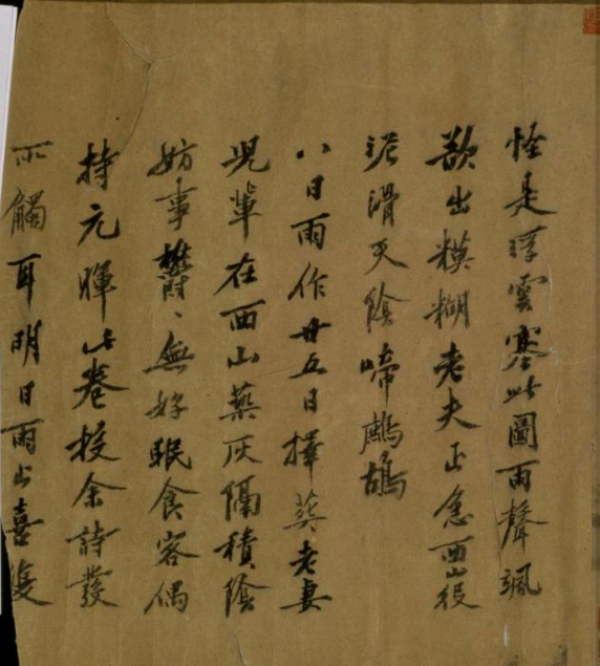 怪是浮雲塞此圖雨聲颯
欲出糢糊老夫正急西山役
泥滑天陰啼鷓鴣
八日雨作廿五日擇葬老妻
兒輩在西山築灰隔積陰
妨事鬱〻無好眠食客偶
持元暉此卷投余詩發
所觸耳明日雨止喜復